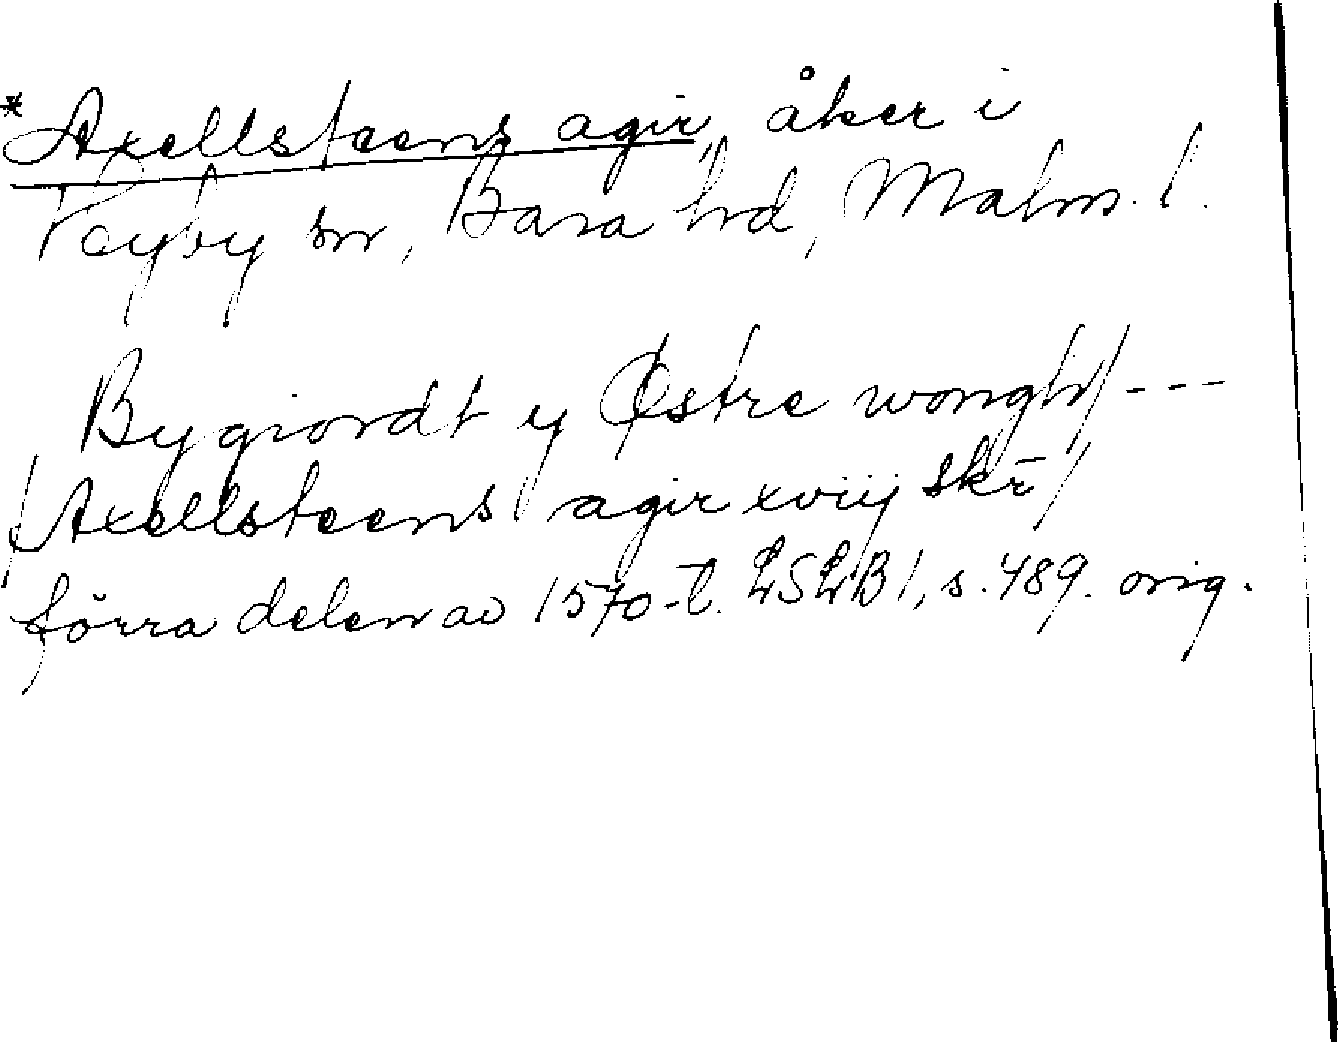 *Axellsteens agir, åker i
Reyby sn, Bara hd, Malm. l.
Bygiordt y Østre wongh/ ---
/Axellsteens agir xviij skr̄/
förra delen av 1570-t. LSLB 1, s. 489. orig.